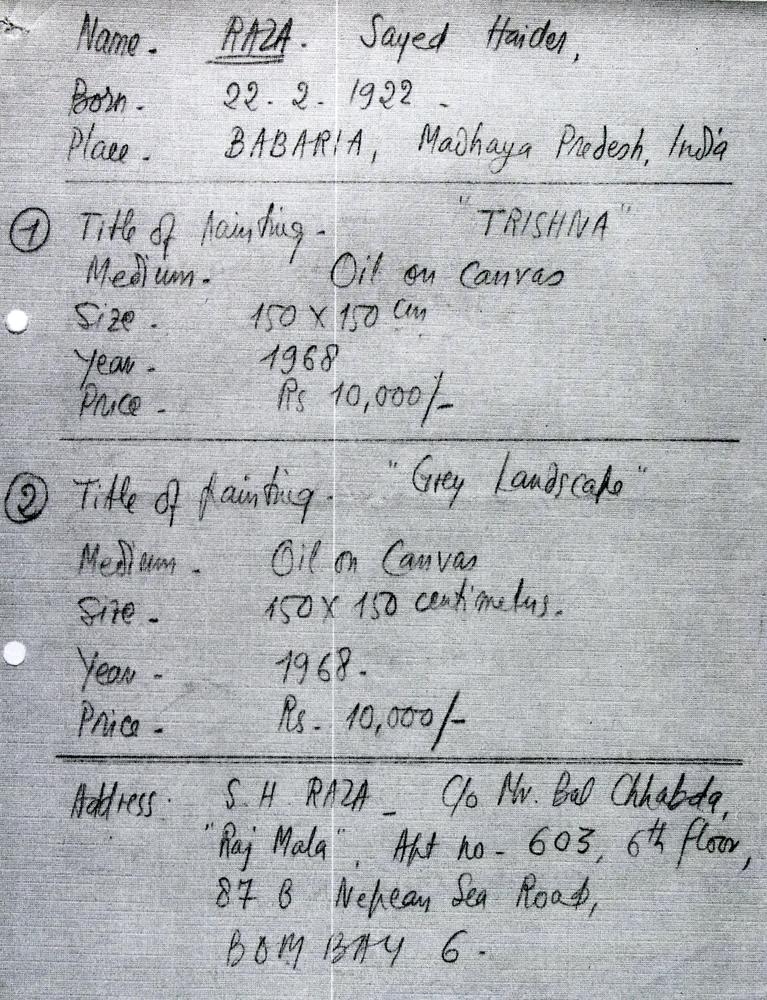 Name - RAZA. Sayed Haider,
Born - 22. 2. 1922 -
Place - BABARIA, Madhaya Predesh, India
1 Title of painting - "TRISHNA"
Medium - Oil on Canvas
Size - 150 X 150 cm
Year - 1968
Price - Rs 10,000/-
2 Title of painting - "Grey Landscape"
Medium - Oil on Canvas
Size - 150 X 150 centimeters.
Year - 1968-
Price - Rs. 10,000/-
Address S. H RAZA - C/o Mr. Bal Chhabda,
"Raj Mala", Apt no - 603, 6th floor,
87 B Nepean Sea Road,
BOMBAY 6-